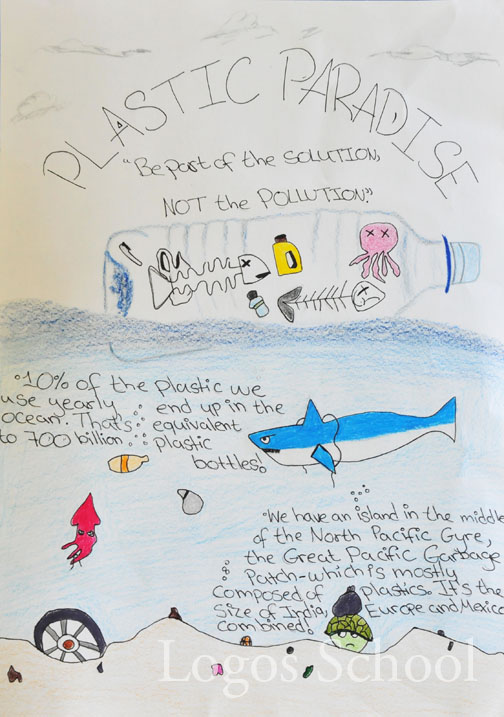 PLASTIC PARADISE
"Be part of the SOLUTION,
NOT the POLLUTION."
10% of the plastic we
use yearly end up in the
ocean. That's equivalent
to 700 billion plastic
bottles!
We have an island in the middle
of the North Pacific Gyre,
the Great Pacific Garbage
Patch-which is mostly
composed of plastics. It's the
size of India, Europe and Mexico
combined!
Logos School